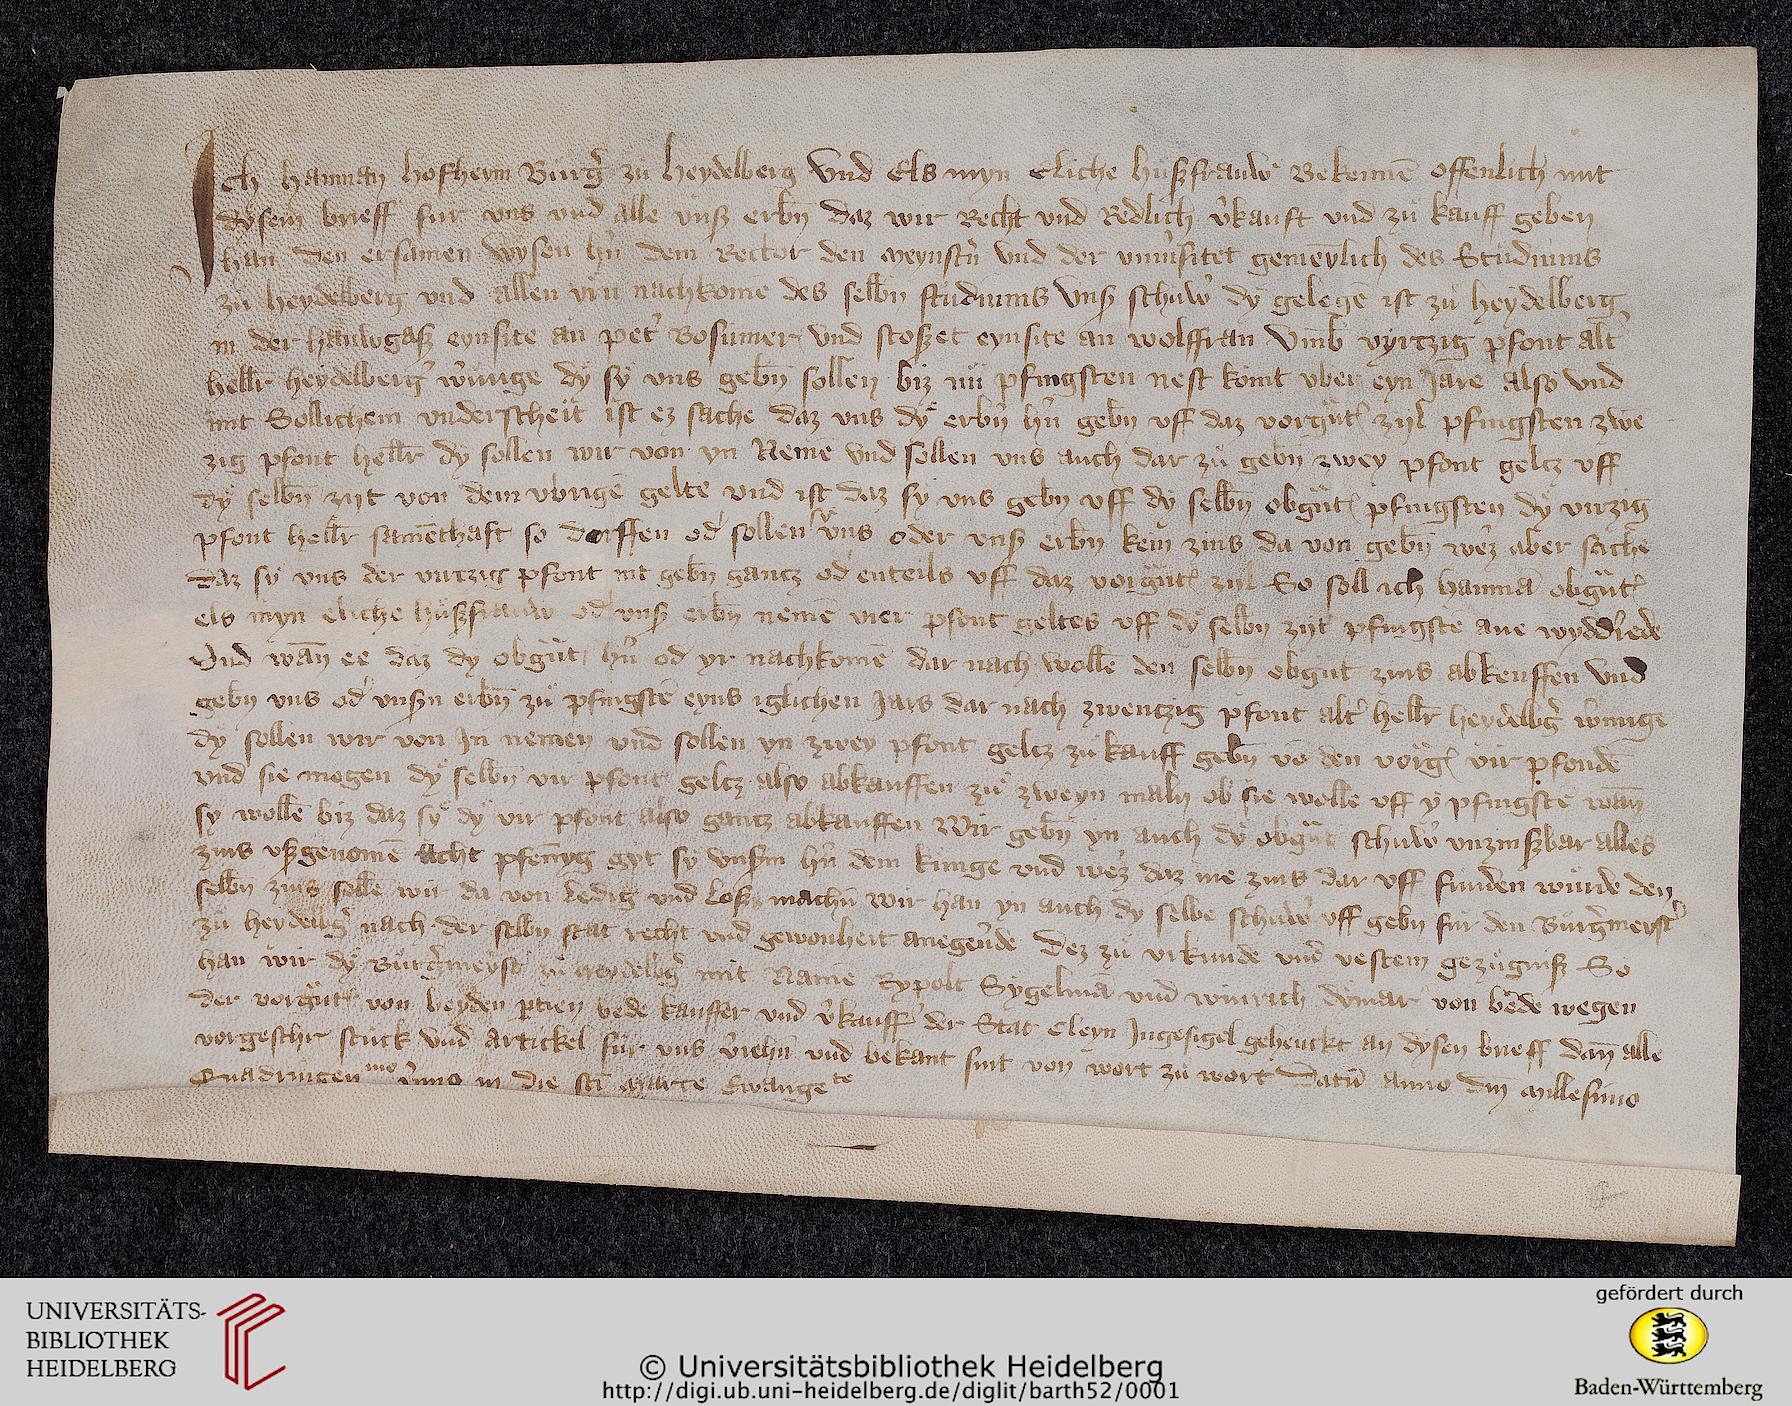 Ich Hannan Hofheym Burg̉ zu Heydelberg Vnd Els myn Eliche hußfrauwe Bekennē offenlich mit
dysem brieff fur vns vnd alle vnß erbn̄ daz wir Recht vnd Redlich v̉kauft vnd zu kauff geben
han den ersamen wysen hn̄ dem Rector den meynstn̉ vnd der vniủsitet gemeynlich des Studiums
zu heydelberg vnd allen yrn nachkomē des selbn̄ studiums vnß schuw̉ dy gelegē ist zu heydelberg
in der hauwgasß eynsite an pet̉ Bosumer vnd stosset eynsite an wolffran Vmb vyrtzig pfont alt̉
hellr̄ heydelberg̉ w̉unge dy sy vns gebn̄ sollen biz nu pfingsten nest komt vber eyn Jare also vnd
mit Sollichem vnderscheit ist ez sache daz vns dy erbn̉ hn̉ gebn vff daz vorgn̄t zijl pfingsten zwē
zig pfont hellr̄ dy sollen wir von yn Nemē vnd sollen vns auch dar zu gebn̄ zwey pfont geltz vff
dy selbn̄ zijt von dem vbrigē gelte vnd ist daz sy vns gebn vff dy selbn̄ obgn̄t pfingsten dy virzig
pfont hellr̄ samēthaft so dorffen od̉ sollen sy vns oder vnß erbn̄ kein zins da von gebn̄ wer̉z aber sache
daz sy vns der virtzig pfont nit gebn̄ gantz od̉ enteils vff daz vorgn̄t zijl So soll ich hannā obgn̄t
els myn eliche hußfrauw od̉ vnß erbn̄ nemē vier pfont geltes vff dy selbn̄ zijt pfingstē ane wydd̉rede
Vnd wan̄ ee daz dy obgn̄t hn̉ od̉ yr nachkomē dar nach wollē den selbn̄ obgn̄t zins abkeuffen vnd
gebn vns od̉ vnsßn erbn̄ zu pfingstē eyns iglichen Jars dar nach zwentzig pfont alt̉ hellr̄ heydelbg̉ w̉unge
dy sollen wir von Jn nemen vnd sollen yn zwey pfont geltz zu kauff gebn̄ vō den vorḡ vir pfondē
vnd sie mogen dy selbn̄ vir pfont geltz also abkauffen zu zweyn maln ob sie wollē vff y pfingstē wan̄
sy wollē biz daz sy dy vir pfont also gantz abkauffen Wir gebn̄ yn auch dy obgn̄t schuw̉ vnzinßbar alles
zins vßgenomē acht pfennyg gyt sy vnßrm hn̉ dem kunige vnd wer̉z daz me zins dar vff funden wurde den
selbn̄ zins sollē wir da von Ledig vnd Loß machn̄ wir han yn auch dy selbe schuw̉ vff gebn fur den Burg̉meyst̉
zu heydelbg̉ nach der selbn̄ stat recht vnd gewonheit anegen̉de Dez zu vrkunde vnd vestem gezugniß So
han wir dy Burg̉meyst̉ zu Heydelbg̉ mit Namē Rypolt Sygelmā vnd winrich dymar von bede wegen
der vorgn̄t von beyden ptien bede kauffer vnd v̉kauff̉ der Stat Cleyn Jngesigel gehenckt an dysen brieff dan̄ alle
vorgeschr stuck vnd Artickel fur vns v̉iehn̄ vnd bekant sint von wort zu wort Datū anno dn̄i Millesimo
Quadringen mo in die sci Marce Ewange te
UNIVERSITÄTS-
BIBLIOTHEK
HEIDELBERG
© Universitätsbibliothek Heidelberg
http://digi.ub.uni-heidelberg.de/diglit/barth52/0001
gefördert durch
Baden-Württemberg